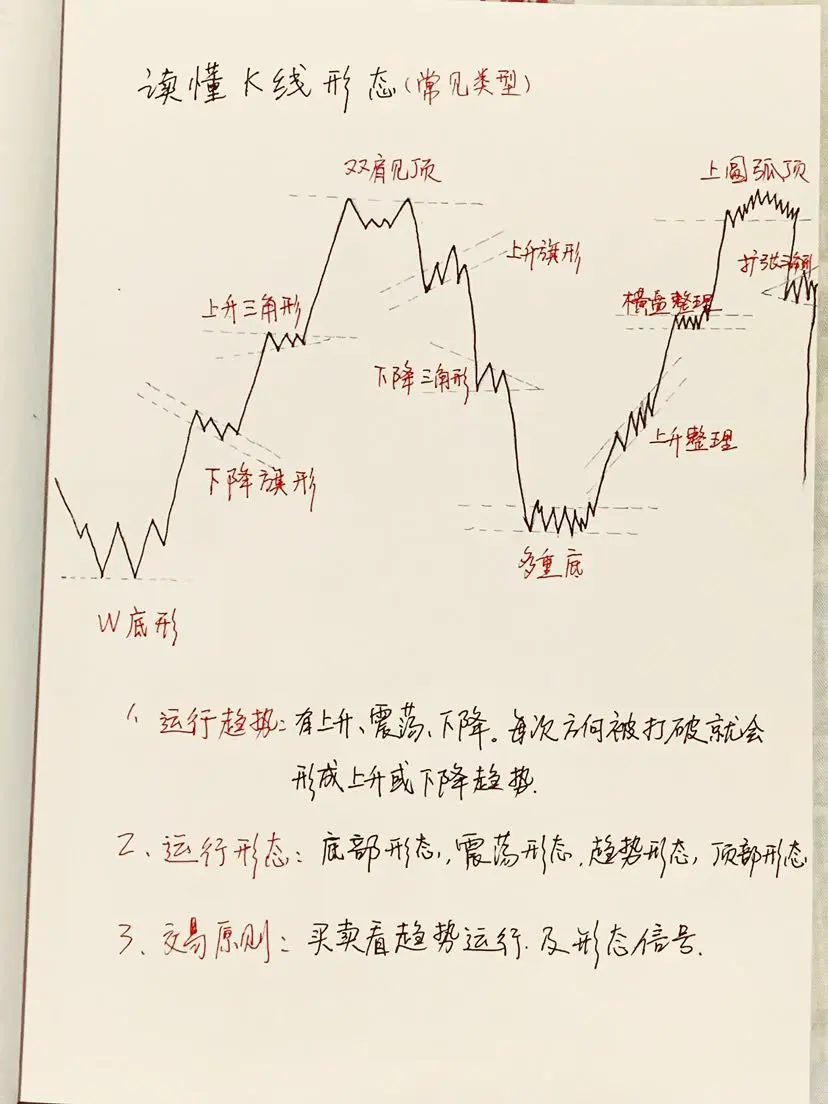 读懂K线形态(常见类型)
双肩见顶
上圆弧顶
上升旗形
扩张三角形
上升三角形
横盘整理
下降三角形
上升整理
下降旗形
多重底
W底形
1、运行趋势：有上升、震荡、下降。每次方向被打破就会
形成上升或下降趋势.
2、运行形态：底部形态，震荡形态，趋势形态，顶部形态
3、交易原则：买卖看趋势运行.及形态信号.